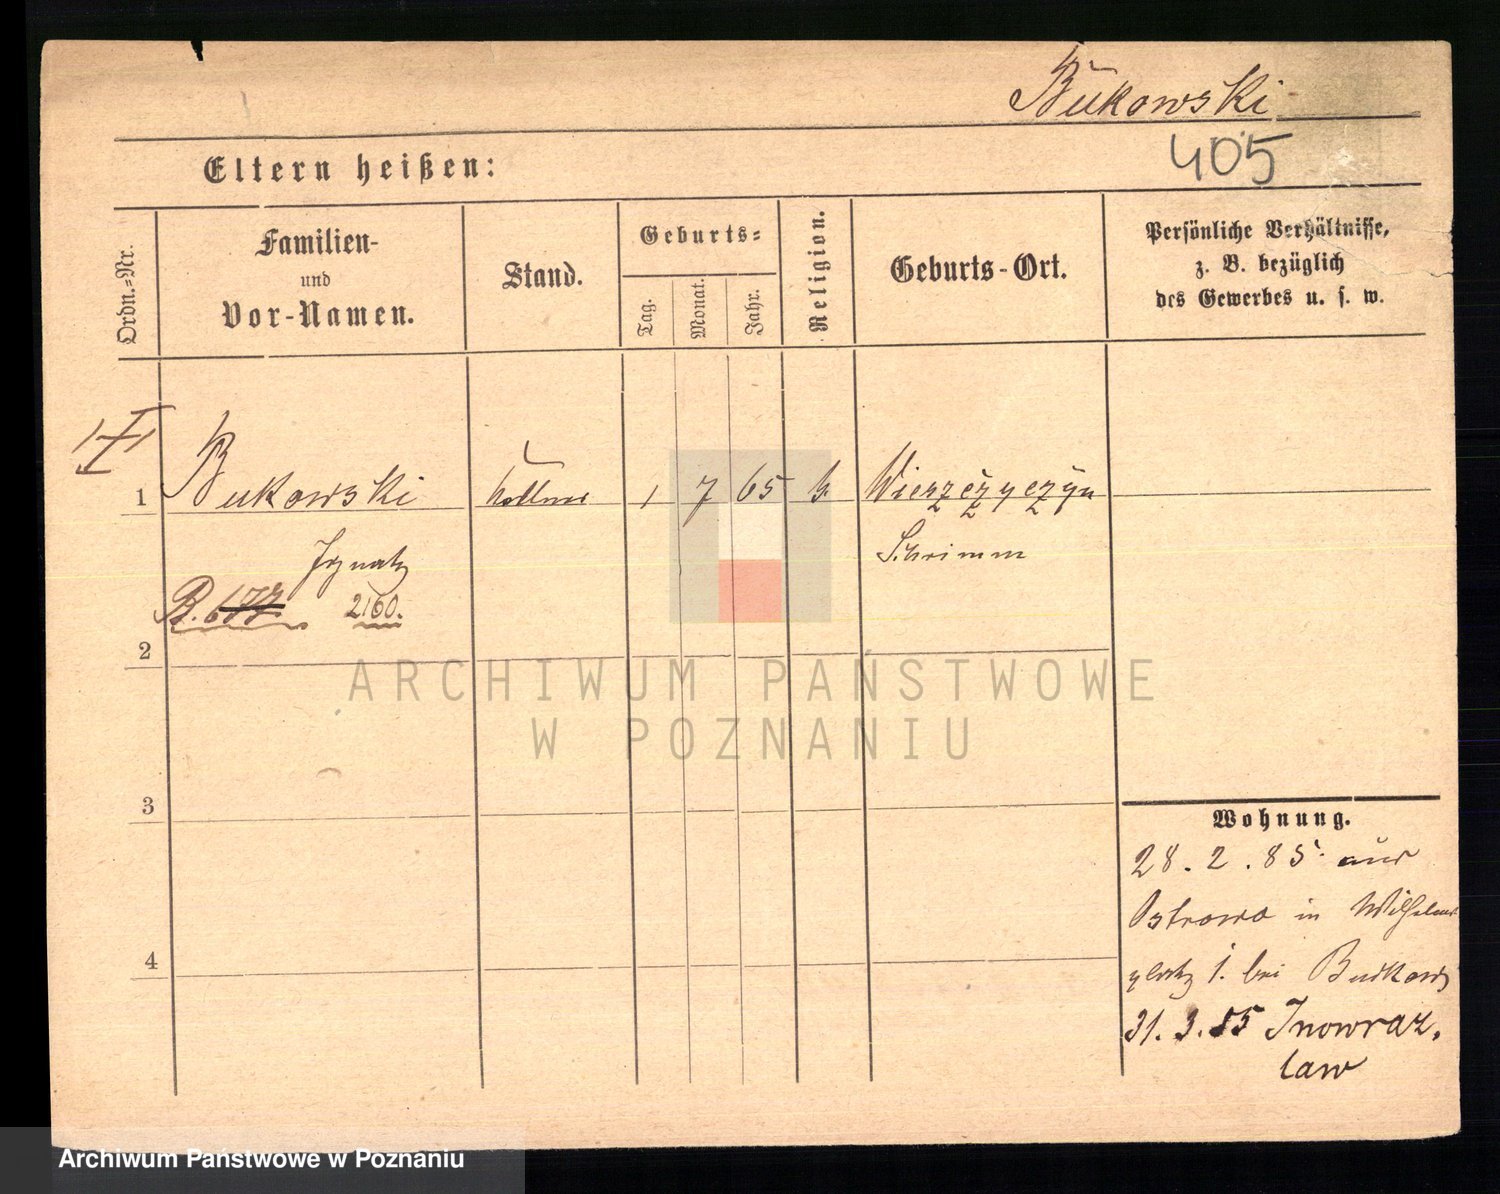 Bukowski
405
Eltern heißen:
Ordn.-Nr.
Familien-
und
Vor-Namen.
Stand.
Geburts-
Tag.
Monat.
Jahr.
Religion.
Geburts-Ort.
Persönliche Verhältnisse,
z. B. bezüglich
des Gewerbes u. s. w.
1
Bukowski
Kellner
1
7
65
k.
Schrimm
Ignatz
B. 677
2160.
2
3
4
ARCHIWUM PAŃSTWOWE
W POZNANIU
Wohnung.
28. 2. 85. aus
Ostrowo in Wilhelms
platz 1. bei Bukows
31. 3. 85 Inowraz.
law
Archiwum Państwowe w Poznaniu